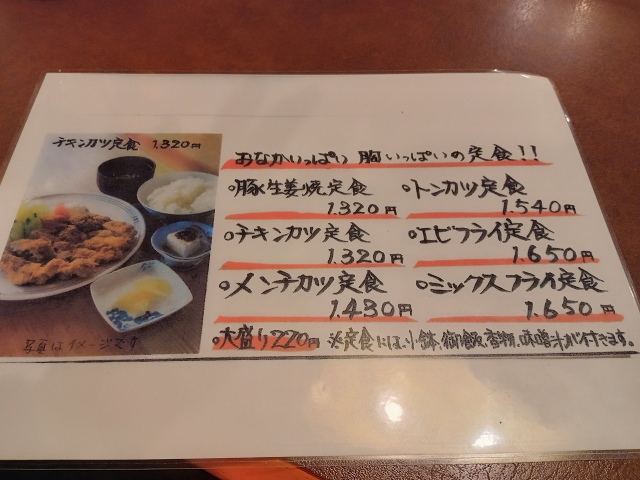 チキンカツ定食 1.320円
おなかいっぱい 胸いっぱいの定食!!
◦豚生姜焼定食
1.320円
◦トンカツ定食
1.540円
◦チキンカツ定食
1.320円
◦エビフライ定食
1.650円
◦メンチカツ定食
1.430円
◦ミックスフライ定食
1.650円
◦大盛り220円 ※定食には、小鉢、御飯、香物、味噌汁が付きます。
写真はイメージです